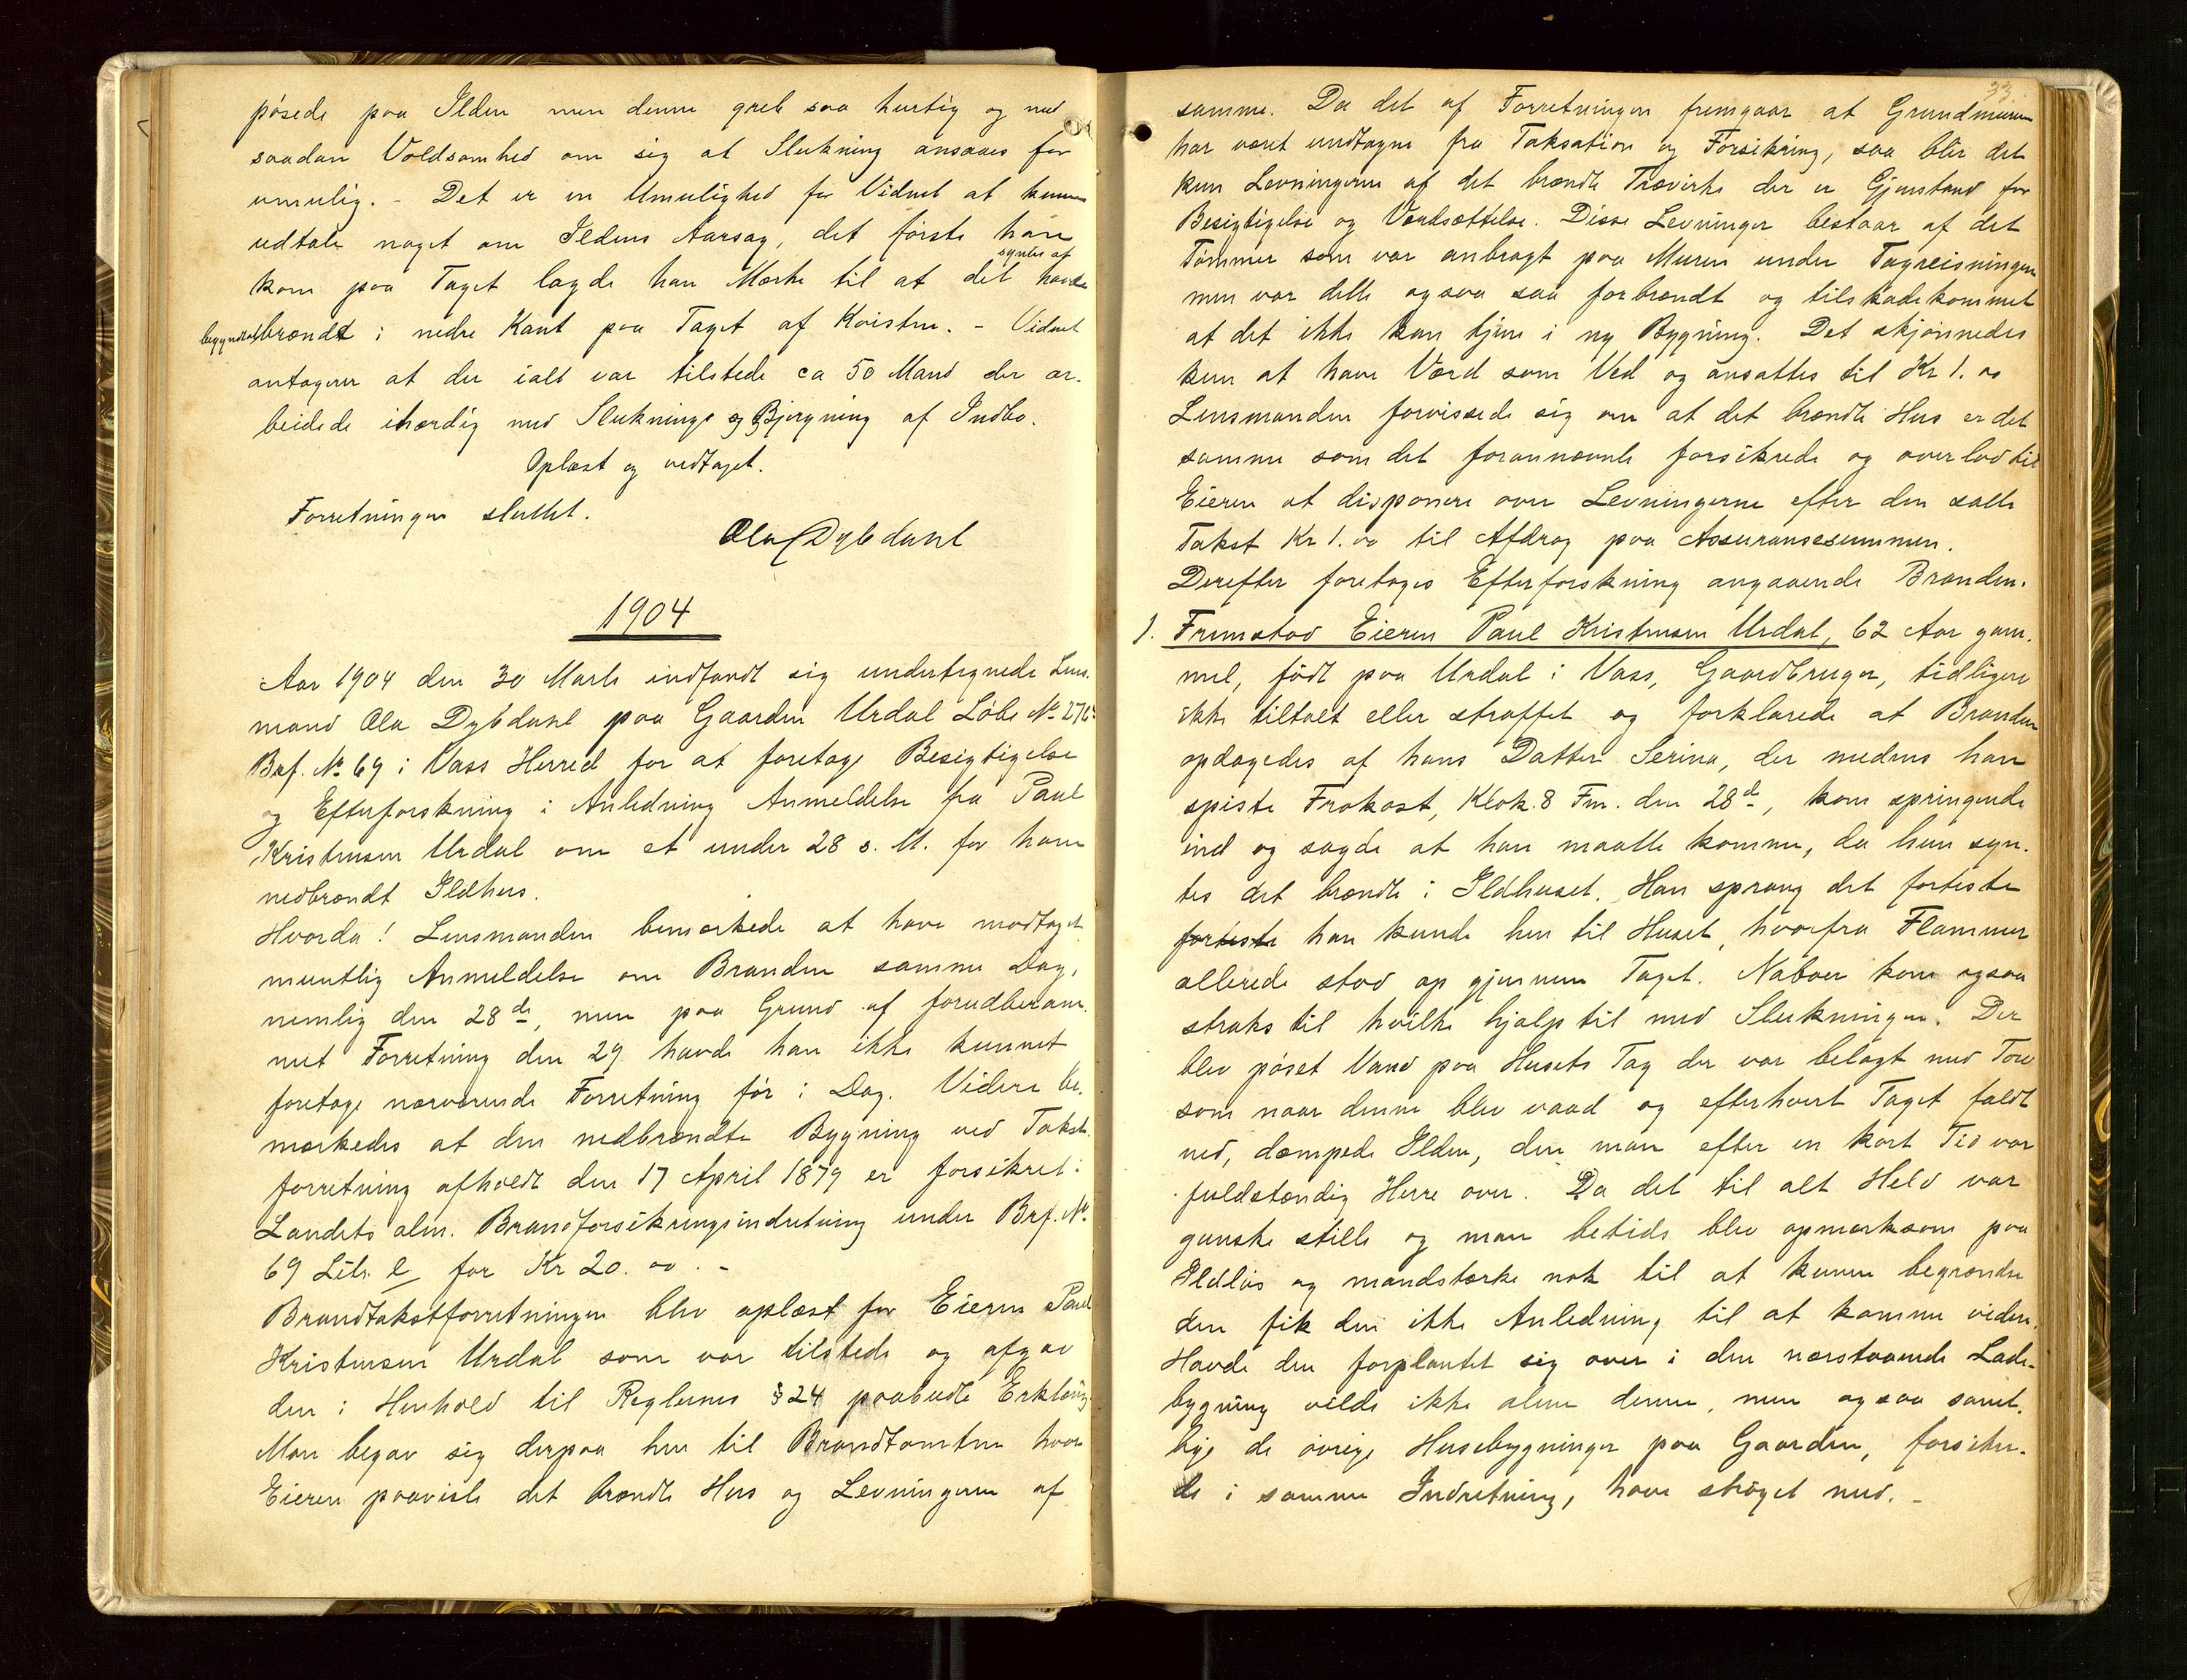 pøsede paa Ilden men denne greb saa hurtig og med
saadan Voldsomhed om sig at Slukning ansaaes for
umulig. - Det er en Umulighed for Vidnet at kunne
udtale noget om Ildens Aarsag, det første han
syntes at
kom paa Taget lagde han Mærke til at det havde
begyndt at brændt i nedre Kant paa Taget af Kvisten. - Vidnet
antagerer at der ialt var tilstede ca 50 Mand der ar-
beidede ihærdig med Sluknings og Bjergning af Indbo.
Oplæst og vedtaget.
Forretningen sluttet.
Ola Dybdahl
1904
Aar 1904 den 30 Marts indfandt sig undertegnede Lens-
mand Ola Dybdahl paa Gaarden Urdal Løbe No 276
Brf. No 69 i Vass Herred for at foretage Besigtigelse
og Efterforskning i Anledning Anmeldelse fra Paul
Kristensen Urdal om et under 28 s. M. for ham
nedbrændt Ildhus.
Hvorda! Lensmanden bemærkede at have modtaget
mundtlig Anmeldelse om Branden samme Dag,
nemlig den 28de, men paa Grund af forudberam-
met Forretning den 29 havde han ikke kunnet
foretage nærværende Forretning før i Dag. Videre be-
mærkedes at den nedbrændte Bygning ved Takst-
forretning afholdt den 17 April 1879 er forsikret i
Landets alm. Brandforsikringsindretning under Brf. No
69 Litr. e for Kr 20.00. -
Brandtakstforretningen blev oplæst for Eieren Paul
Kristensen Urdal som var tilstede og afgav
den i Henhold til Reglernes § 24 paabudte Erklæring
Man begav sig derpaa hen til Brandtomten hvor
Eieren paaviste det brændte Hus og Levningerne af
33
samme. Da det af Forretningen fremgaar at Grundmuren
har været undtagne fra Taksation og Forsikring, saa blir det
kun Levningerne af det brændte Trævirke der er Gjenstand for
Besigtigelse og Værdsættelse. Disse Levninger bestaar af det
Tømmer som var anbragt paa Muren under Tagreisningen
men var dette ogsaa saa forbrændt og tilskadekommet
at det ikke kan tjene i ny Bygning. Det skjønnedes
kun at have Værd som Ved og ansattes til Kr 1.00
Lensmanden forvissede sig om at det brændte Hus er det
samme som det forannævnte forsikrede og overlod til
Eieren at disponere over Levningerne efter den satte
Takst Kr 1.00 til Afdrag paa Assuransesummen.
Derefter foretages Efterforskning angaaende Branden.
1. Fremstod Eieren Paul Kristensen Urdal, 62 Aar gam-
mel, født paa Urdal i Vass, Gaardbruger, tidligere
ikke tiltalt eller straffet og forklarede at Branden
opdagedes af hans Datter Serina, der medens han
spiste Frokost, Klok. 8 Fm. den 28de, kom springende
ind og sagde at han maatte komme, da hun syn-
tes det brændte i Ildhuset. Han sprang det forteste
forteste han kunde hen til Huset, hvorfra Flammer
allerede stod op gjennem Taget. Naboer kom ogsaa
straks til hvilke hjalp til med Slukningen. Der
blev pøset Vand paa Husets Tag der var belagt med Torv
som naar denne blev vaad og efterhvert Taget faldt
ned, dæmpede Ilden, den man efter en kort Tid var
fuldstændig Herre over. Da det til alt Held var
ganske stille og man betids blev opmærksom paa
Ildløs og mandstærke nok til at kunne begrændse
den fik den ikke Anledning til at komme videre.
Havde den forplantet sig over i den nærstaaende Lade-
bygning vilde ikke alene denne, men ogsaa samt-
lige de øvrige Husebygninger paa Gaarden, forsikre-
de i samme Indretning, have strøget med. -